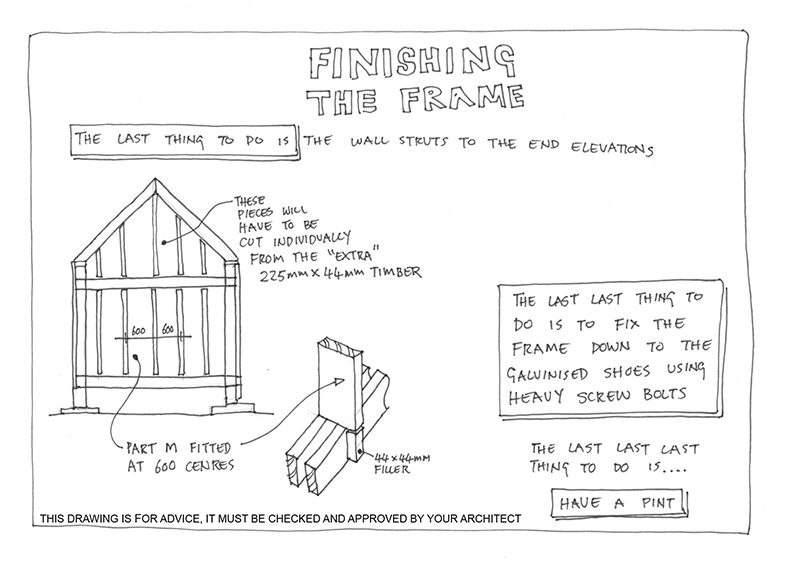 FINISHING
THE FRAME
THE LAST THING TO DO IS THE WALL STRUTS TO THE END ELEVATIONS
THESE
PIECES WILL
HAVE TO BE
CUT INDIVIDUALLY
FROM THE "EXTRA"
225mm x 44mm TIMBER
600 600
PART M FITTED
AT 600 CENRES
44 x 44mm
FILLER
THE LAST LAST THING TO
DO IS TO FIX THE
FRAME DOWN TO THE
GALVINISED SHOES USING
HEAVY SCREW BOLTS
THE LAST LAST LAST
THING TO DO IS....
HAVE A PINT
THIS DRAWING IS FOR ADVICE, IT MUST BE CHECKED AND APPROVED BY YOUR ARCHITECT